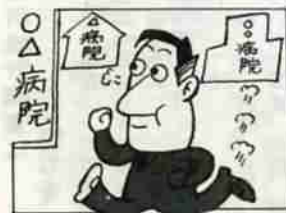 ○△病院
△病院
○○病院